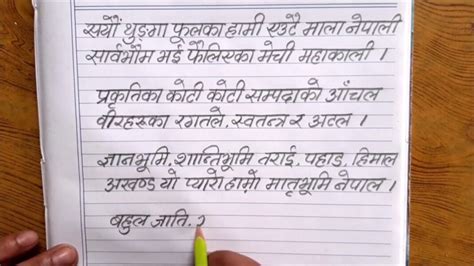 सयौं थुङ्गा फूलका हामी एउटै माला नेपाली
सार्वभौम भई फैलिएका मेची महाकाली ।
प्रकृतिका कोटी कोटी सम्पदाको आँचल
वीरहरूका रगतले, स्वतन्त्र र अटल ।
ज्ञानभूमि, शान्तिभूमि तराई, पहाड, हिमाल
अखण्ड यो प्यारो हाम्रो मातृभूमि नेपाल ।
बहुल जाति,